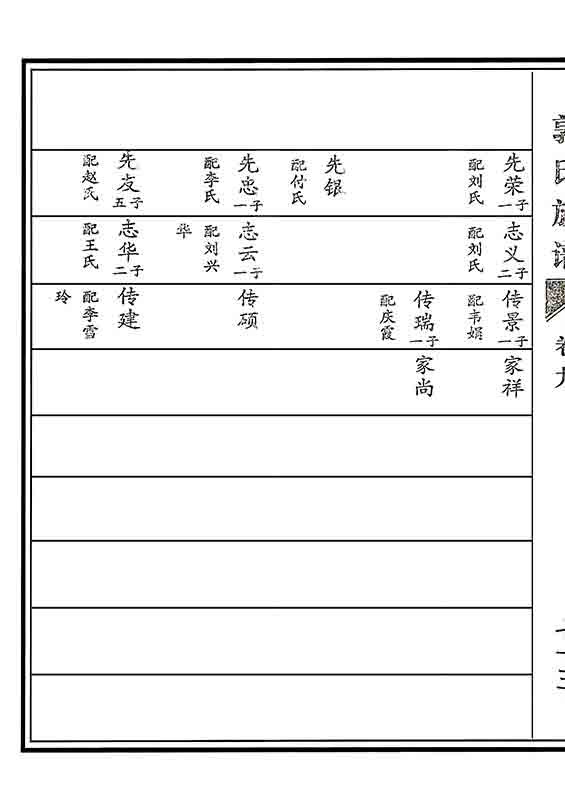 郭氏族谱
卷九
先荣一子
配刘氏
先银
配付氏
先忠一子
配李氏
先友五子
配赵氏
志义二子
配刘氏
志云一子
配刘兴
华
志华二子
配王氏
传景一子
配韦娟
传瑞一子
配庆霞
传硕
传建
配李雪
玲
家祥
家尚